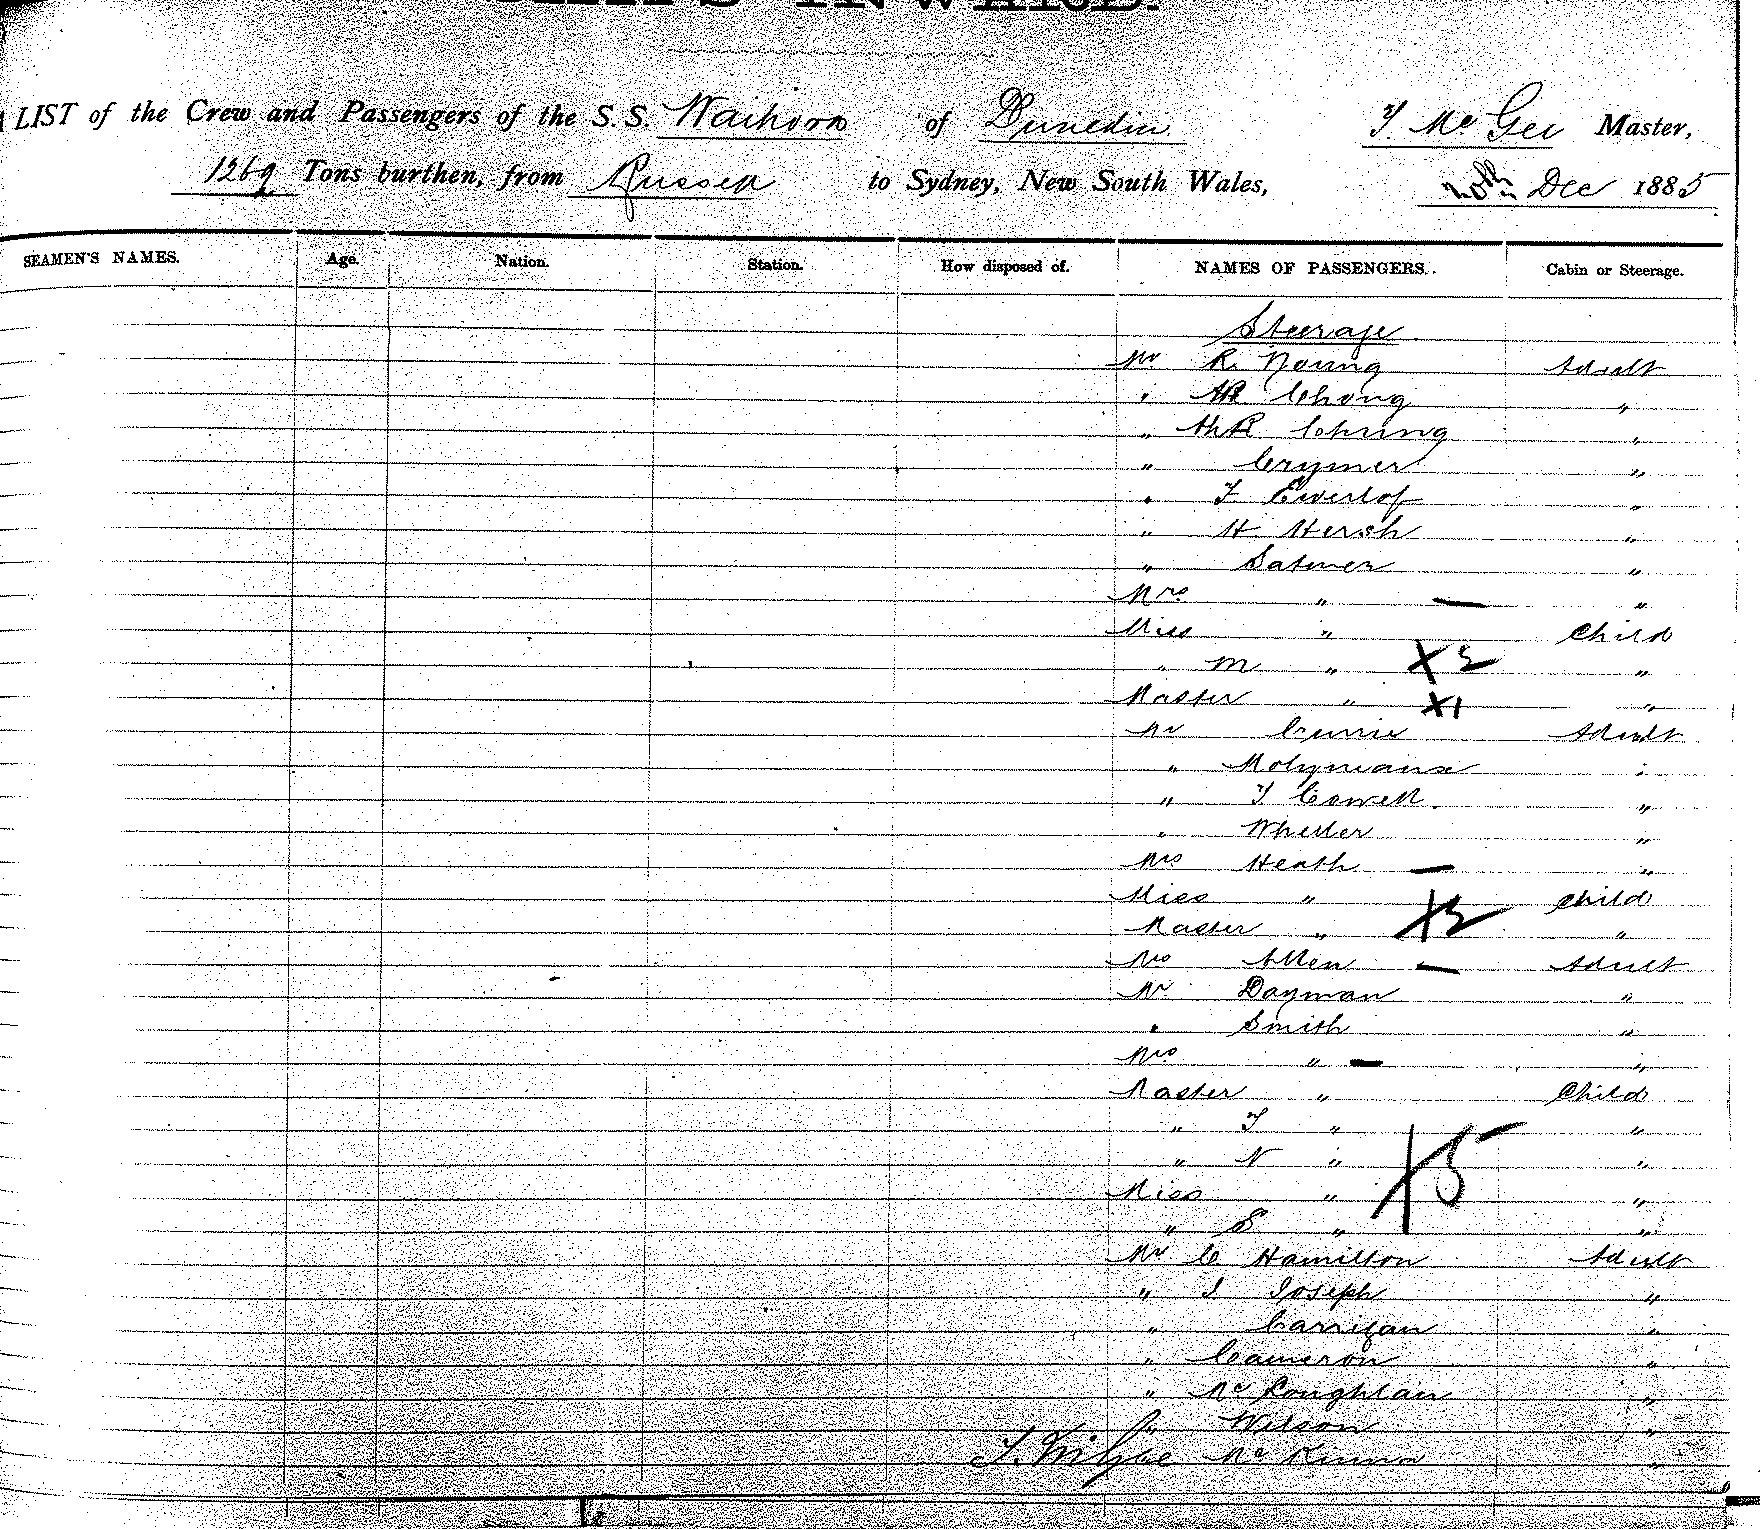 SHIPS INWARD.
A LIST of the Crew and Passengers of the S.S. Waihora of Dunedin T. McGee Master,
1269 Tons burthen, from Russell to Sydney, New South Wales, 20th Dec 1885
SEAMEN'S NAMES. Age. Nation. Station. How disposed of. NAMES OF PASSENGERS. Cabin or Steerage.
Steerage
Mr R. Young Adult
" Chong "
" Chung "
" Crymer "
" F "
" H. Hersh "
" "
Mrs " — "
Miss " Child
" M " X 2 "
Master " X1 "
Mr Currie Adult
" Molyneaux "
" T Cowell. "
" Wheeler "
Mrs Heath — "
Miss " Child
Master " X2 "
Mrs Allen — Adult
Mr Dayman "
" Smith "
Mrs " — "
Master " Child
" T " "
" N " "
Miss " X5 "
" E " "
Mr C Hamilton Adult
" I Joseph "
" Carrigan "
" Cameron "
" Mc Loughlan "
" Wilson "
T. McGee Mc Kinnon "